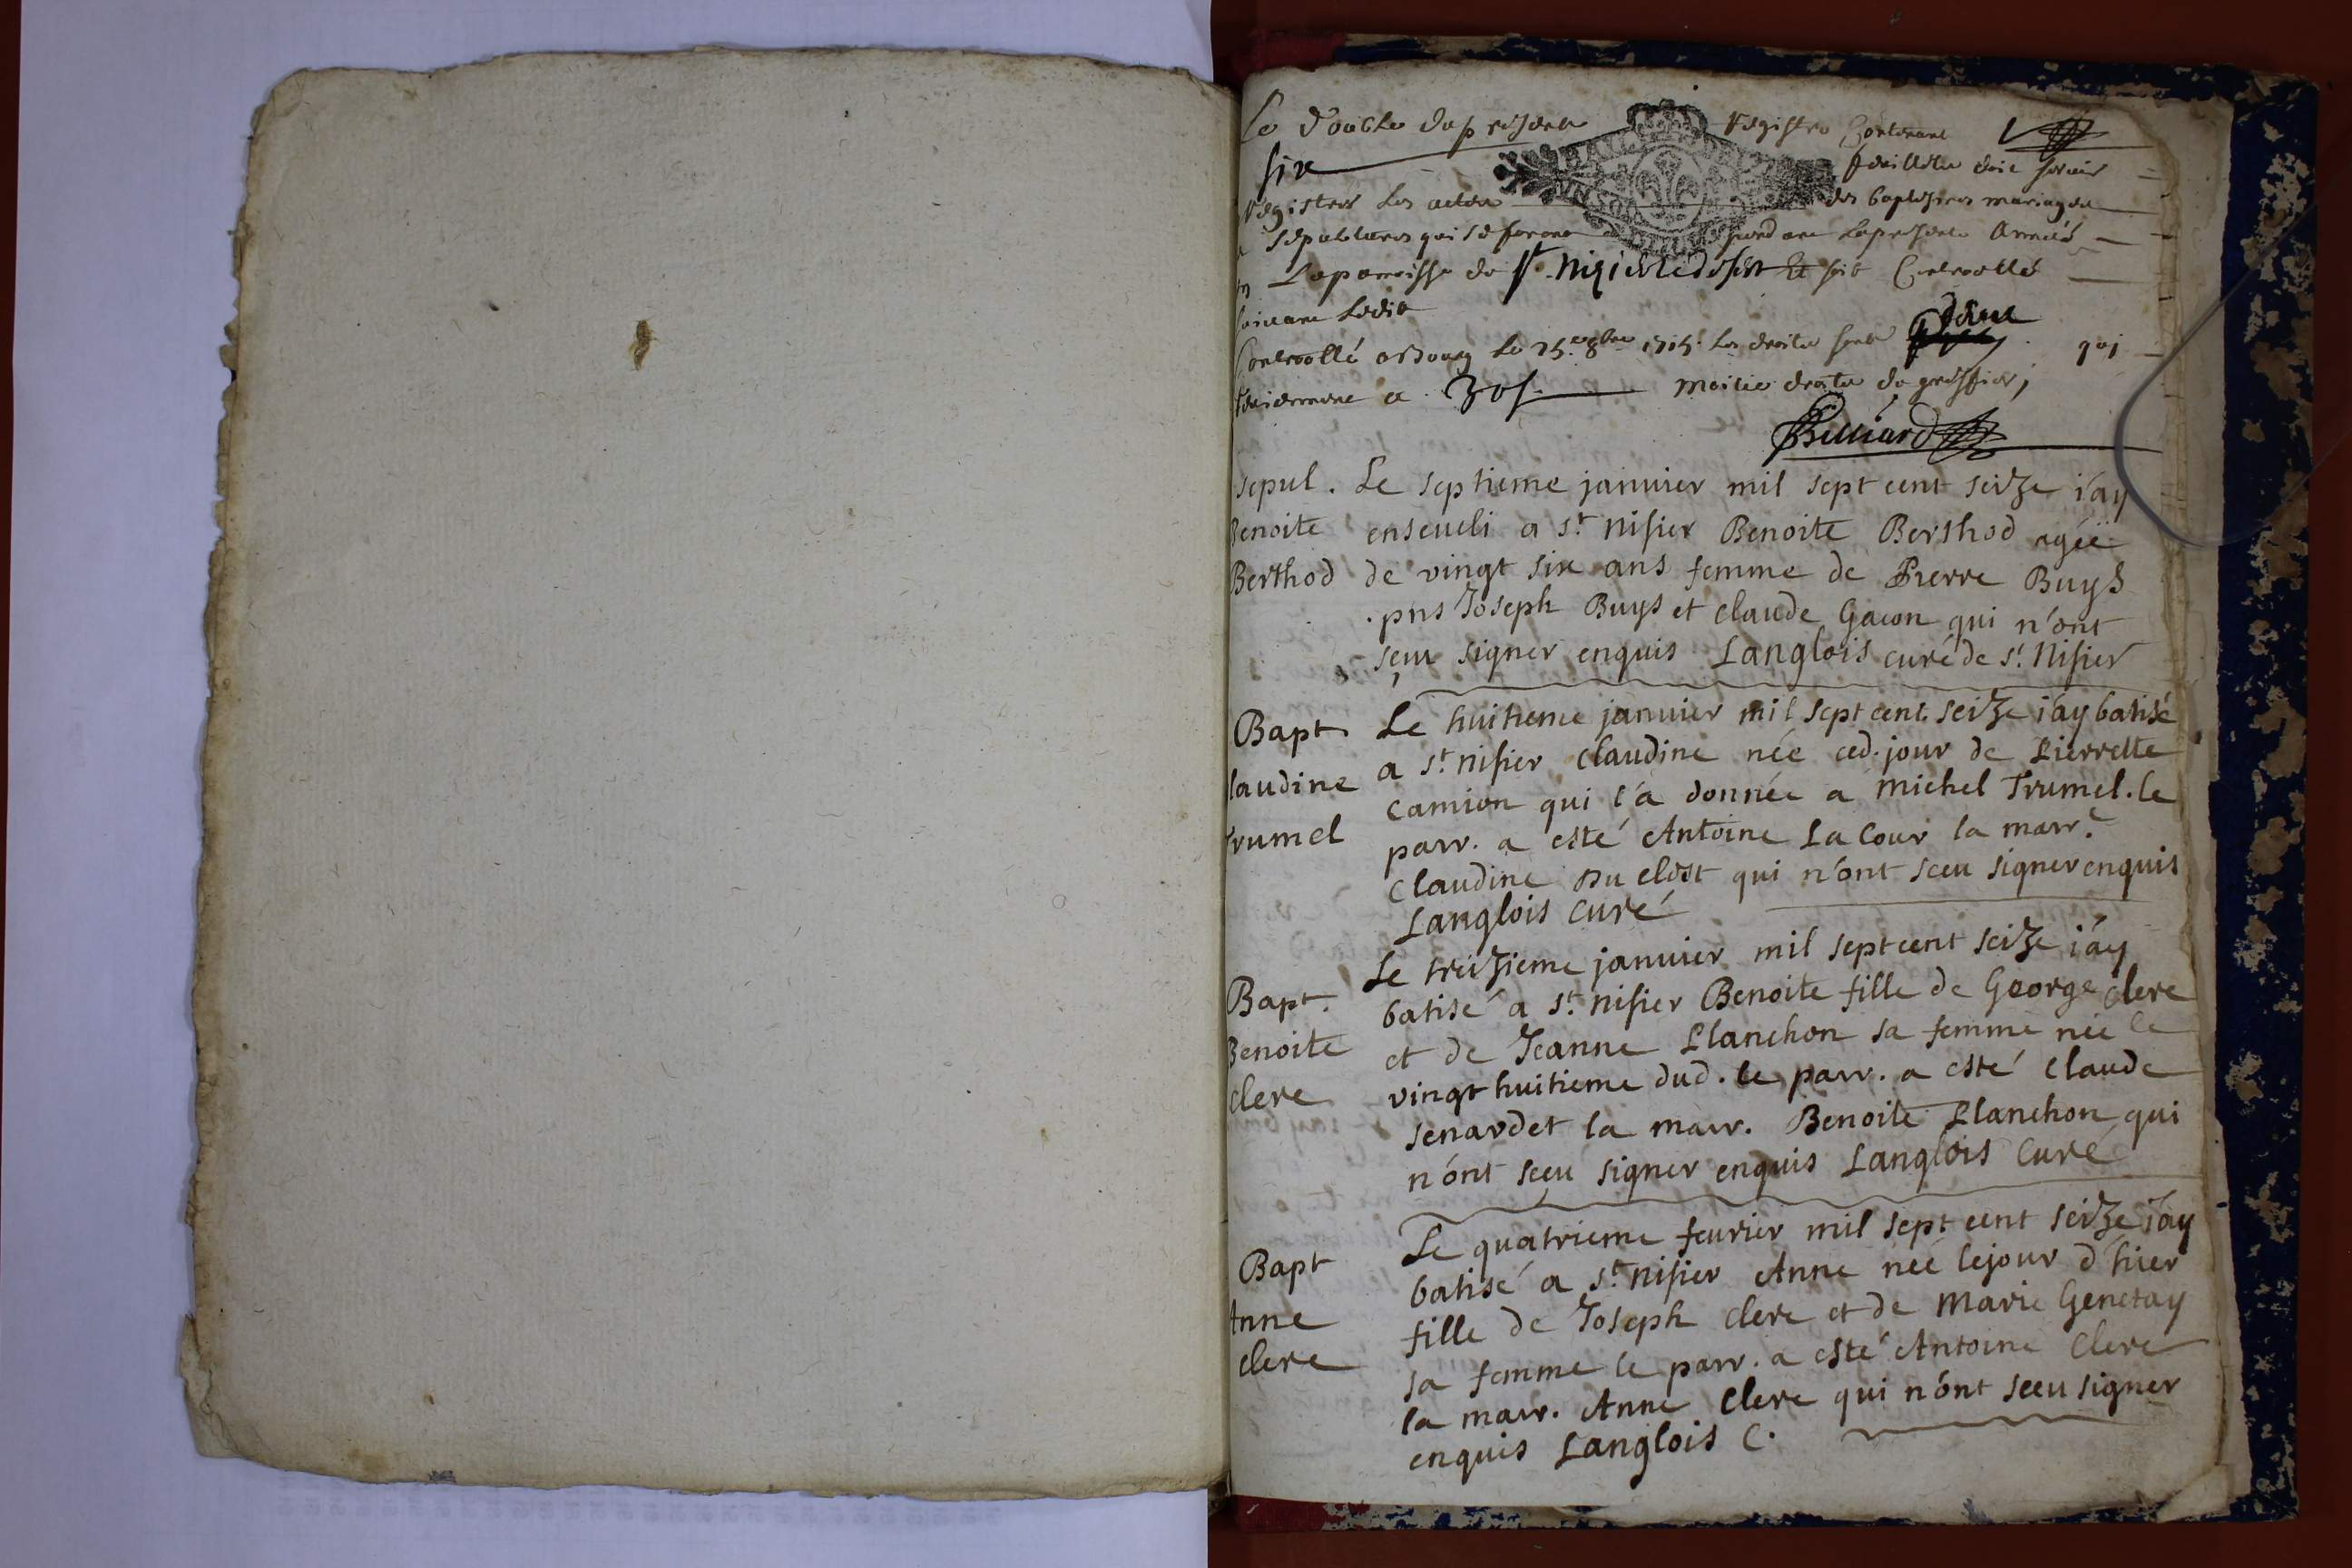 Le double du present Registre Contenant
six feuillets doit servir
Registrer les actes des baptesmes mariages
sepultures qui se feront pendant la presente Année
La paroisse de St Nizier le desert Et soit Controllé
suivant Ledit
Controllé a Bourg le 25e 8bre 1715. les droits sont qui
Reviennent a 30s. moitié droits de greffier,
Billiard
sepul. Le septieme janvier mil sept cent seize i'ay
Benoite enseveli a st. nisier Benoite Berthod agée
Berthod de vingt six ans femme de Pierre Buys
. pns Joseph Buys et Claude Gacon qui n'ont
sçeu signer enquis Langlois curé de st. Nisier
Bapt Le huitieme janvier mil sept cent seize i'ay batisé
laudine a st. nisier Claudine née ced. jour de Pierrette
rumel Camion qui l'a donnée a Michel Trumel. le
parr. a esté Antoine La Cour la marr.e
Claudine Du Clost qui n'ont sceu signer enquis
Langlois Curé
Le treizieme janvier mil sept cent seize i'ay
Bapt. batisé a st. nisier Benoite fille de George Clere
Benoite et de Jeanne Planchon sa femme née le
Clere vingt huitieme dud. le parr. a esté Claude
senardet la marr. Benoite Planchon qui
n'ont sçeu signer enquis Langlois Curé
Le quatrieme fevrier mil sept cent seize j'ay
Bapt batisé a st. nisier Anne née le jour d'hier
Anne fille de Joseph Clere et de Marie Genetay
Clere sa femme le parr. a esté Antoine Clere
la marr. Anne Clere qui n'ont sceu signer
enquis Langlois C.